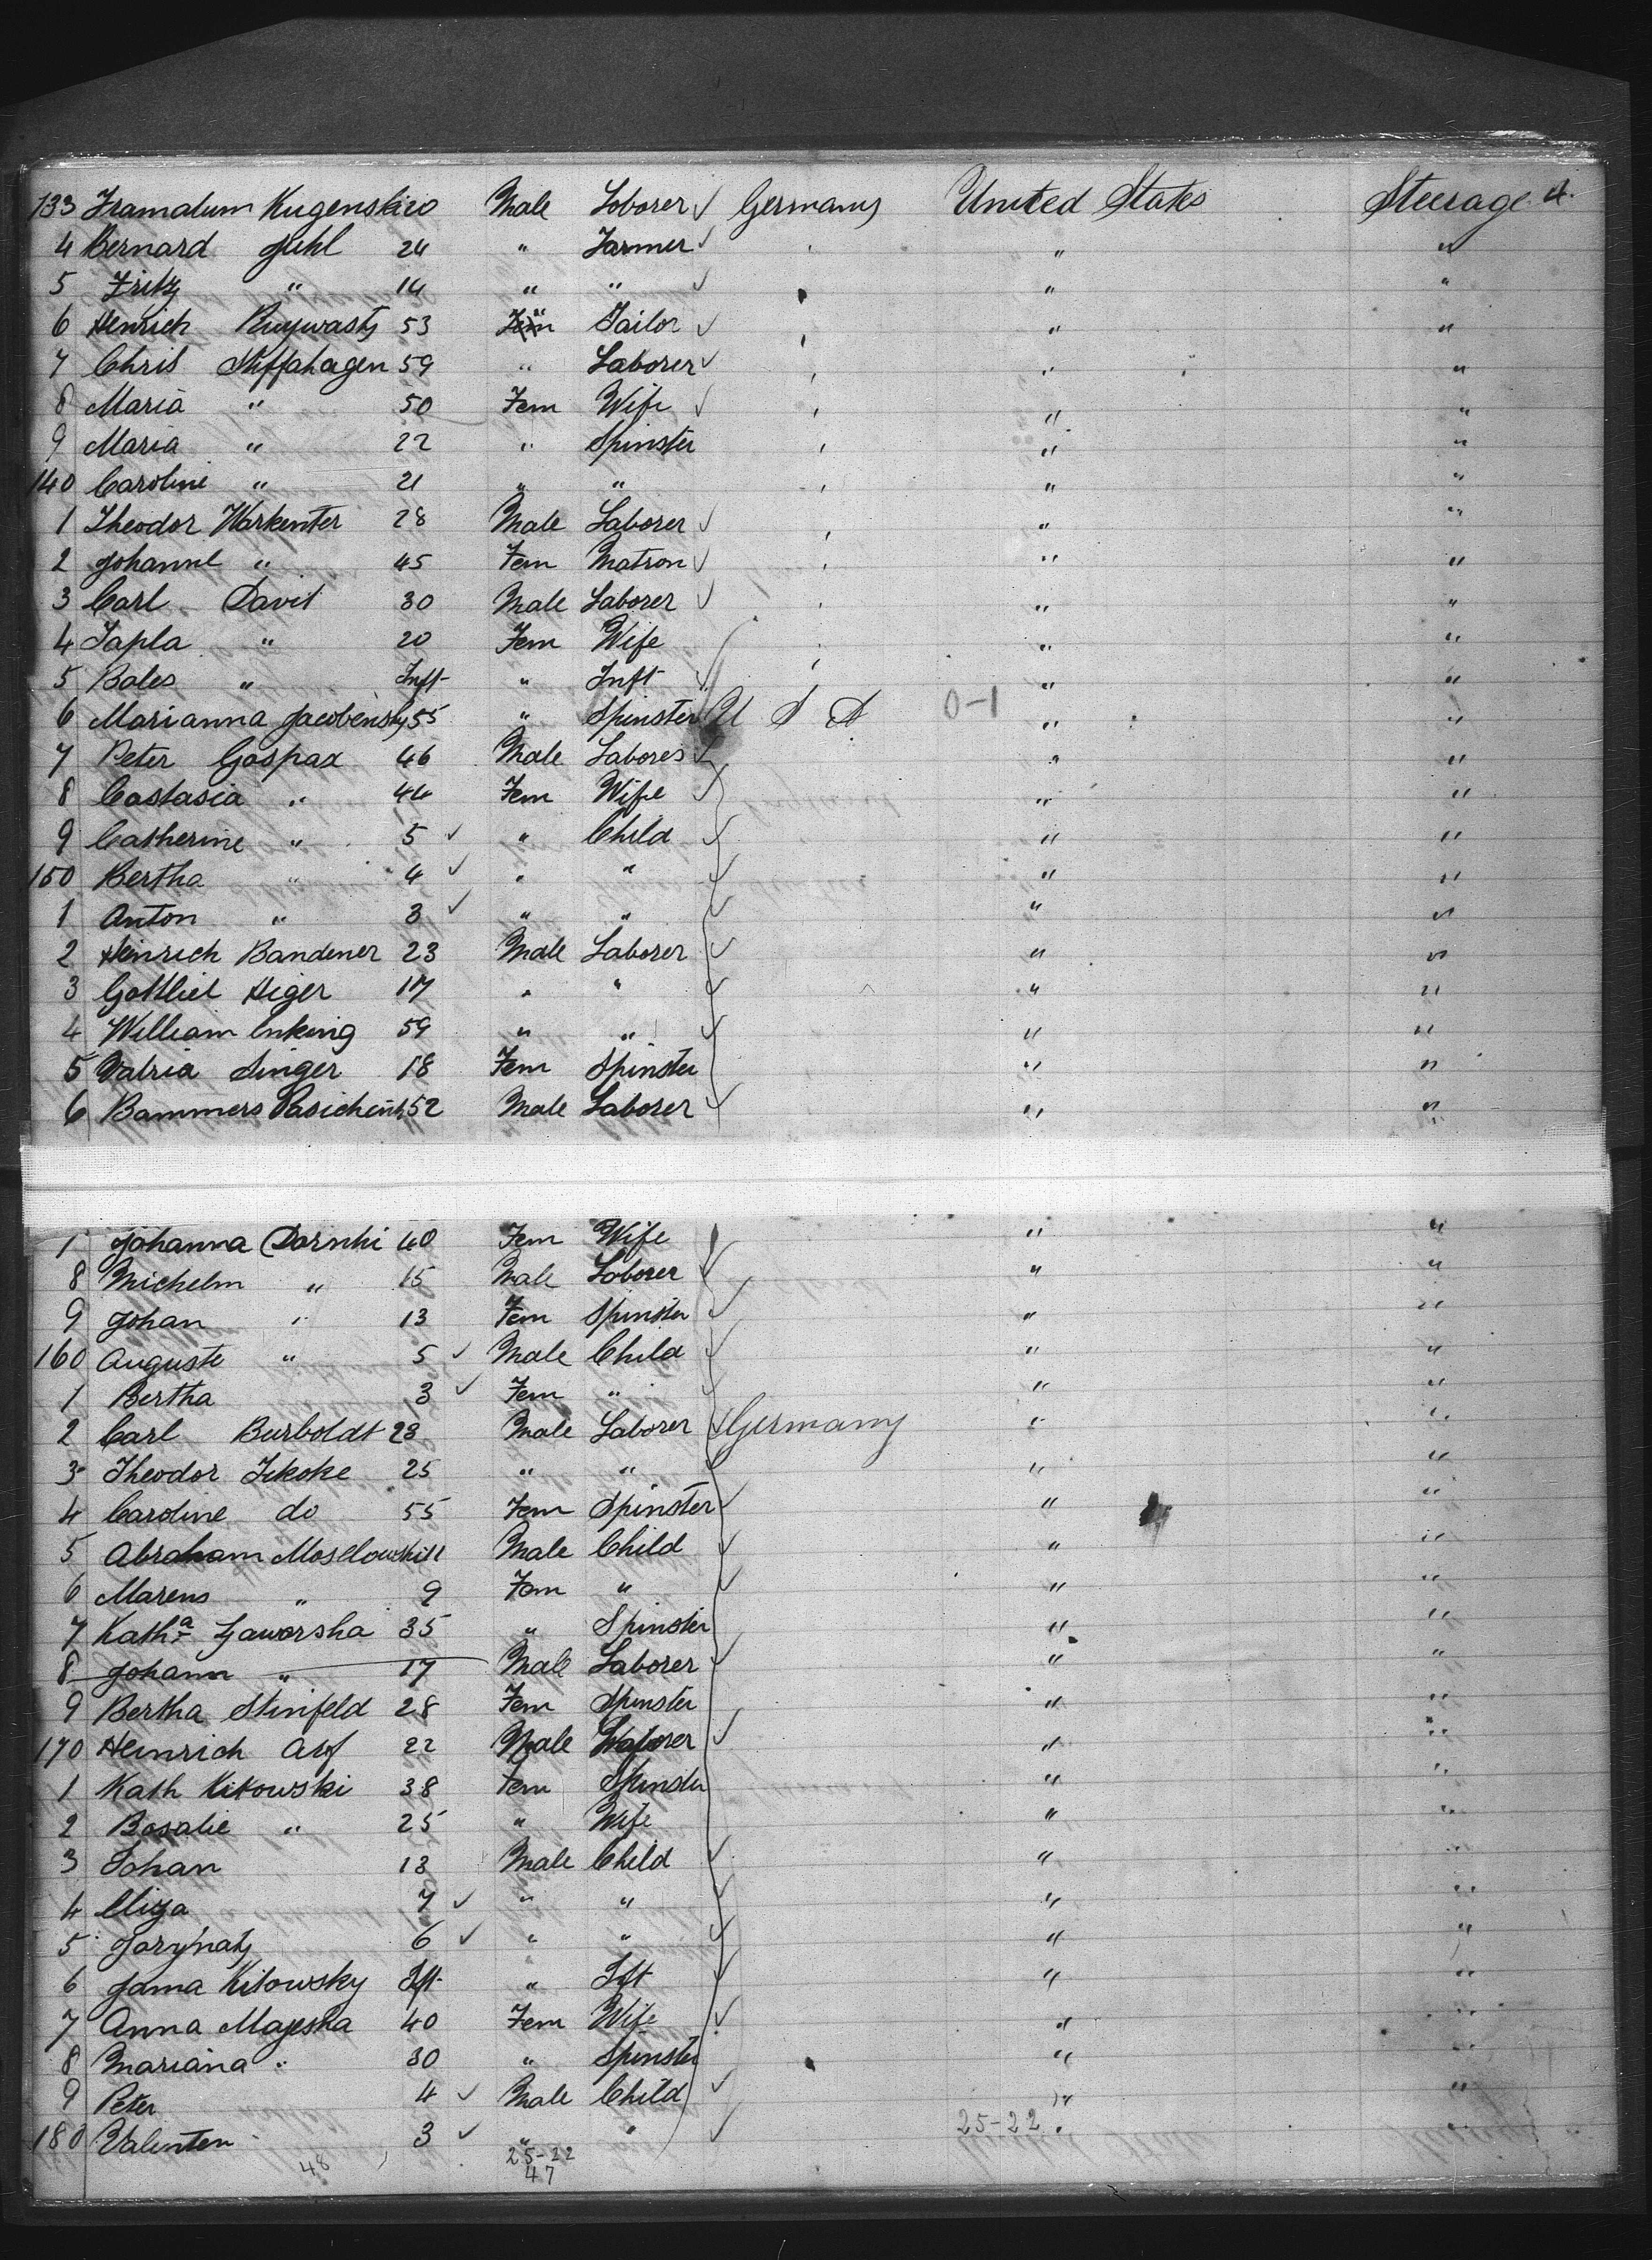 133 Framalum Kugenski 20 Male Laborer ✓ Germany United States Steerage 4
4 Bernard Juhl 24 " Farmer ✓ " " "
5 Fritz " 14 " " ✓ " " "
6 Henrich 53 " Tailor ✓ " " "
7 Chris Stiffahagen 59 " Laborer ✓ " " "
8 Maria " 50 Fem Wife ✓ " " "
9 Maria " 22 " Spinster " " "
140 Caroline " 21 " " " " "
1 Theodor Warkenter 28 Male Laborer ✓ " " "
2 Johanne " 45 Fem Matron ✓ " " "
3 Carl David 30 Male Laborer ✓ " " "
4 Tapla " 20 Fem Wife " " "
5 Bales " Inft " Inft ✓ " " "
6 Marianna Jacobensky 55 " Spinster U S A 0-1 " "
7 Peter Gaspax 46 Male Laborer ✓ " "
8 Castasia " 44 Fem Wife ✓ " "
9 Catherine " 5 ✓ " Child ✓ " "
150 Bertha " 4 ✓ " " ✓ " "
1 Anton " 3 ✓ " " ✓ " "
2 Heinrich Bandener 23 Male Laborer ✓ " "
3 Gottliet Higer 17 " " ✓ " "
4 William Enking 59 " " ✓ " "
5 Valria Singer 18 Fem Spinster " "
6 Bammers 52 Male Laborer ✓ " "
Johanna Darnhi 40 Fem Wife " "
8 Michelm " 15 Male Laborer ✓ " "
9 Johan " 13 Fem Spinster ✓ " "
160 Auguste " 5 ✓ Male Child ✓ " "
1 Bertha 3 ✓ Fem " ✓ " "
2 Carl Burboldt 28 Male Laborer ✓ Germany " "
3 Theodor Jekoke 25 " " ✓ " "
4 Caroline do 55 Fem Spinster ✓ " "
5 Abraham Mosllowski 11 Male Child ✓ " "
6 Marens " 9 Fem " ✓ " "
7 Katha Zaworsha 35 " Spinster " "
8 Johann " 17 Male Laborer ✓ " "
9 Bertha Stinfeld 28 Fem Spinster " "
170 Heinrich Arf 22 Male Laborer ✓ " "
1 Kath Kitowski 38 Fem Spinster " "
2 Bosalie " 25 " Wife " "
3 Johan 13 Male Child ✓ " "
4 Eliza 7 ✓ " " ✓ " "
5 6 ✓ " " ✓ " "
6 Jama Kitowsky Ift " Ift ✓ " "
7 Anna Majeska 40 Fem Wife ✓ " "
8 Mariana " 30 " Spinster " "
9 Peter 4 ✓ Male Child ✓ " "
180 Valenten 3 ✓ " " ✓ 25-22 " "
48 25-22
47